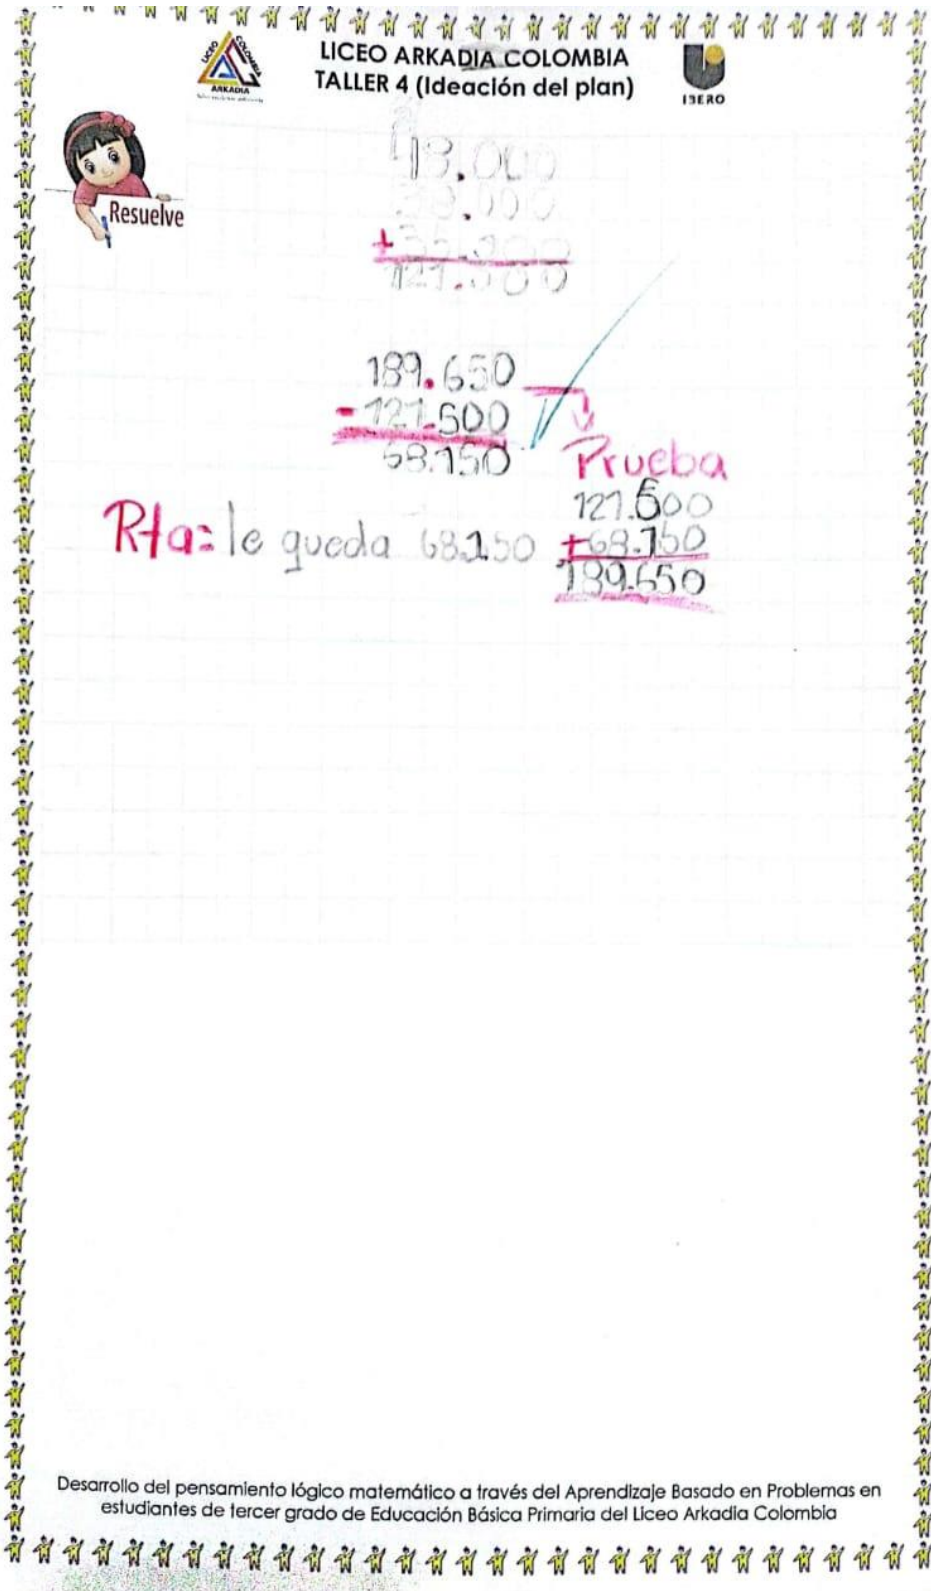 LICEO ARKADIA COLOMBIA
TALLER 4 (Ideación del plan)
LICEO COLOMBIA
ARKADIA
IBERO
Resuelve
189.650
- 121.500
68.150
Prueba
121.500
+68.150
189.650
Rta= le queda 68.150
Desarrollo del pensamiento lógico matemático a través del Aprendizaje Basado en Problemas en
estudiantes de tercer grado de Educación Básica Primaria del Liceo Arkadia Colombia